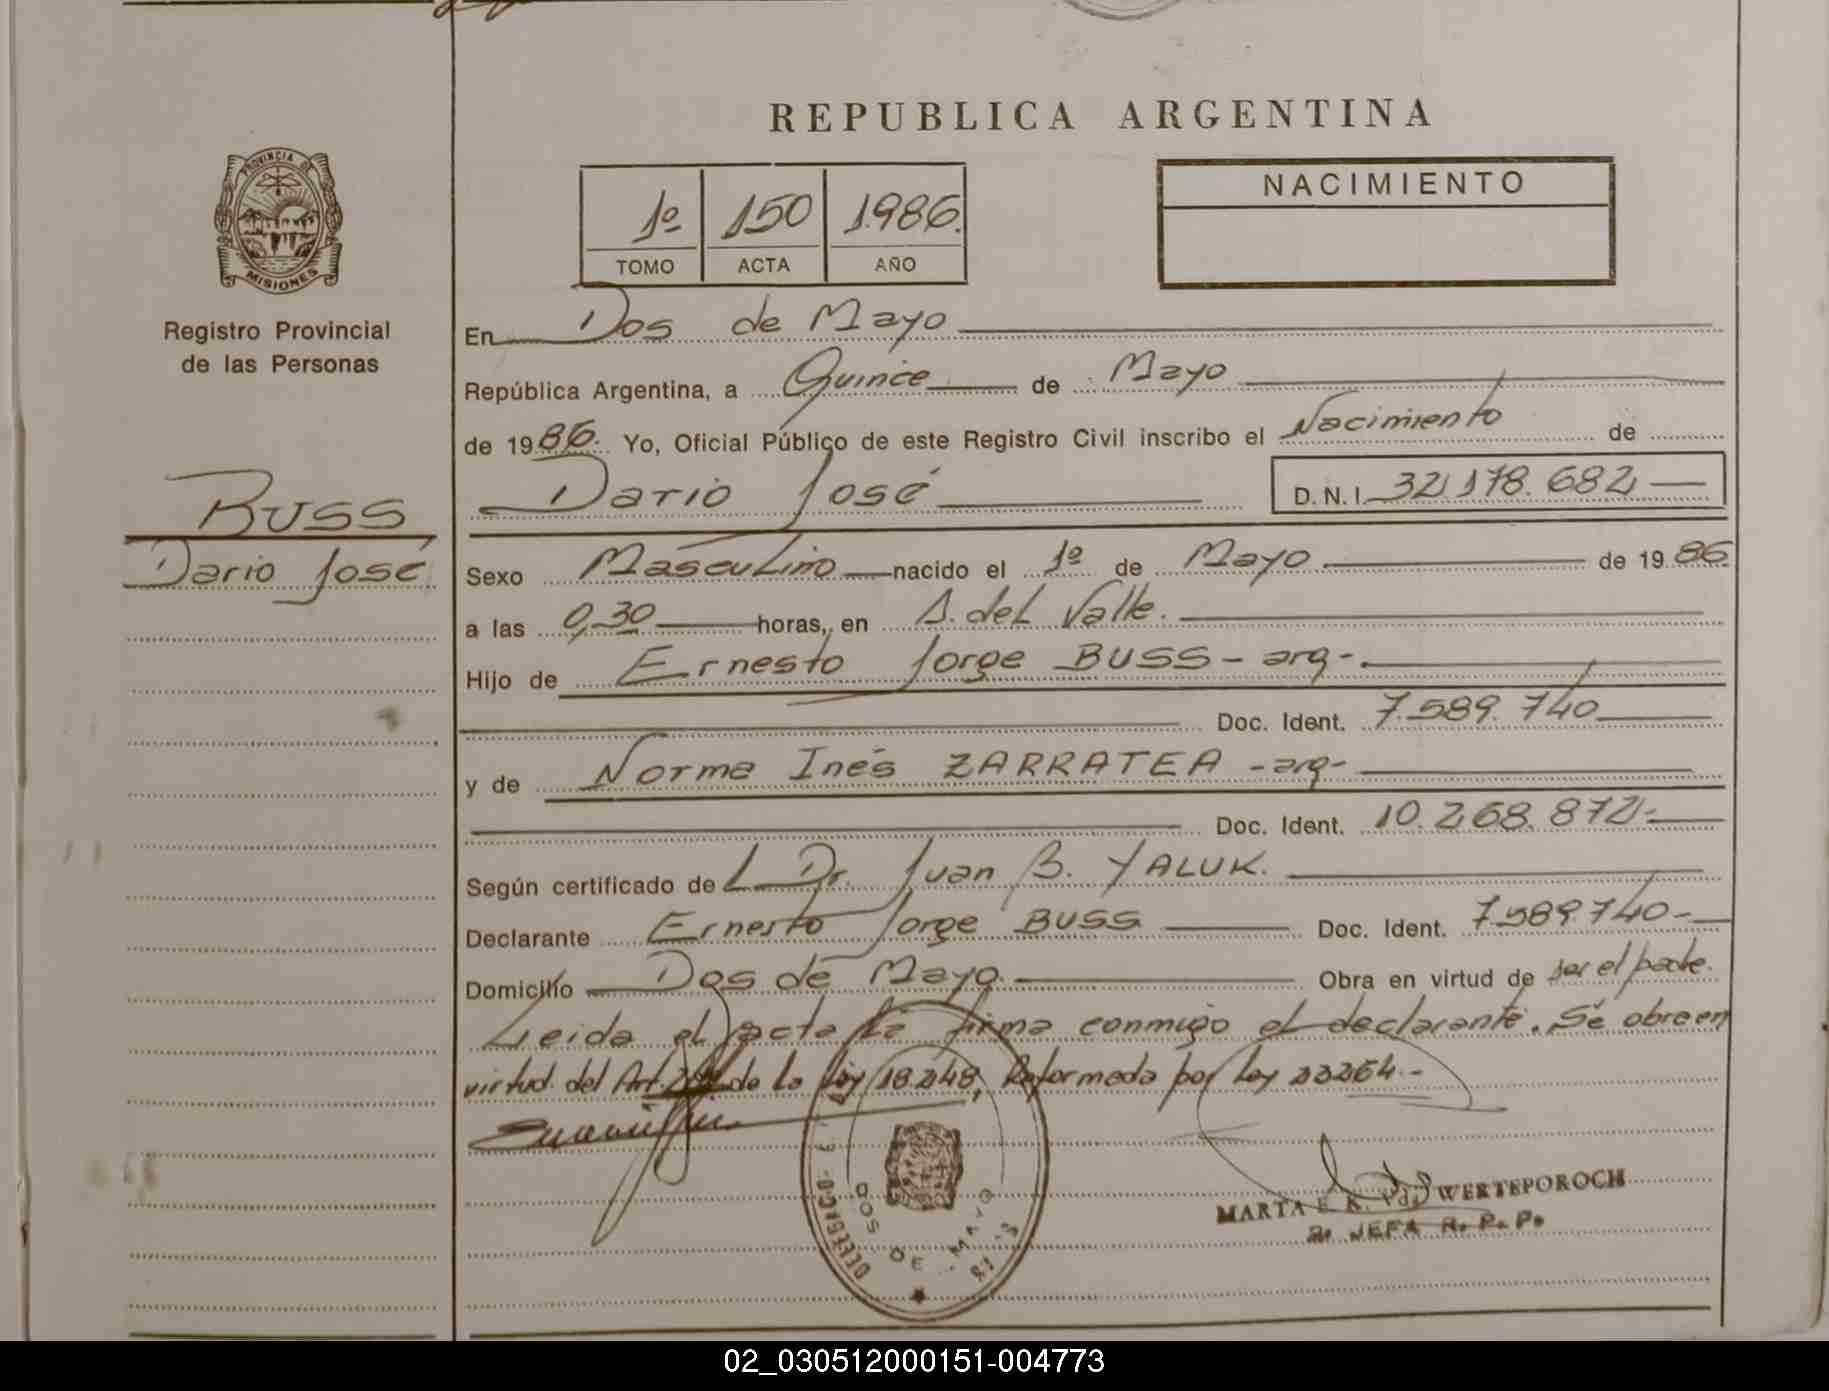 REPUBLICA ARGENTINA
PROVINCIA DE
MISIONES
Registro Provincial
de las Personas
1º 150 1986.
TOMO ACTA AÑO
NACIMIENTO
En Dos de Mayo
República Argentina, a Quince de Mayo
de 1986. Yo, Oficial Público de este Registro Civil inscribo el Nacimiento de
Dario José D.N.I. 32.178.682
BUSS
Dario José
Sexo Masculino nacido el 1º de Mayo de 1986.
a las 0,30 horas, en A. del Valle.
Hijo de Ernesto Jorge BUSS - arg-.
Doc. Ident. 7.589.740
y de Norma Inés ZARRATEA - arg-
Doc. Ident. 10.268.872.-
Según certificado de L Dr. Juan B. YALUK.
Declarante Ernesto Jorge BUSS Doc. Ident. 7.589.740-
Domicilio Dos de Mayo. Obra en virtud de ser el padre.
Leida el acta la firma conmigo el declarante. Se obre en
virtud del Art. de la Ley 18.248, Reformada por Ley 23264.-
DOS DE MAYO
MARTA E. R. Vda WERTEPOROCH
JEFA R. P. P.
02_030512000151-004773